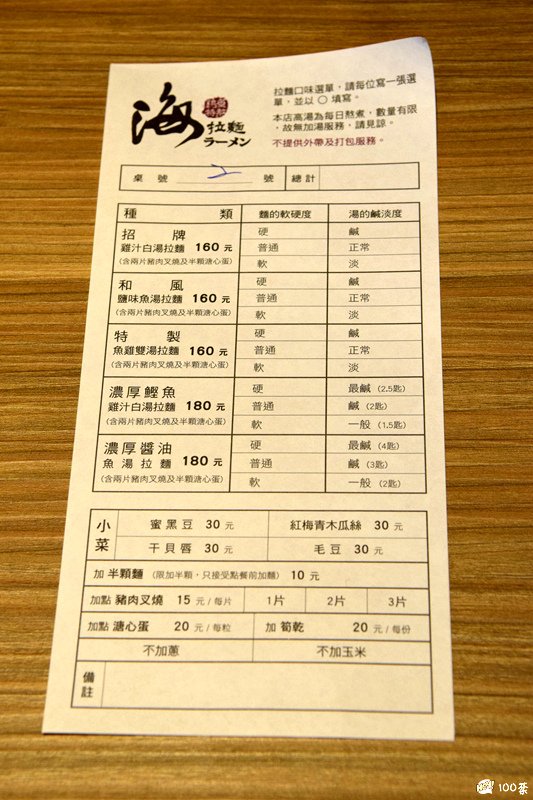 海
拉麵
ラーメン
拉麵口味選單，請每位寫一張選
單，並以 ○ 填寫。
本店高湯為每日熬煮，數量有限
，故無加湯服務，請見諒。
不提供外帶及打包服務。
桌號 2 號 總計
種類 麵的軟硬度 湯的鹹淡度
招牌
雞汁白湯拉麵 160 元
(含兩片豬肉叉燒及半顆溏心蛋)
硬 鹹
普通 正常
軟 淡
和風
鹽味魚湯拉麵 160 元
(含兩片豬肉叉燒及半顆溏心蛋)
硬 鹹
普通 正常
軟 淡
特製
魚雞雙湯拉麵 160 元
(含兩片豬肉叉燒及半顆溏心蛋)
硬 鹹
普通 正常
軟 淡
濃厚鰹魚
雞汁白湯拉麵 180 元
(含兩片豬肉叉燒及半顆溏心蛋)
硬 最鹹 (2.5匙)
普通 鹹 (2匙)
軟 一般 (1.5匙)
濃厚醬油
魚湯拉麵 180 元
(含兩片豬肉叉燒及半顆溏心蛋)
硬 最鹹 (4匙)
普通 鹹 (3匙)
軟 一般 (2匙)
小菜
蜜黑豆 30 元 紅梅青木瓜絲 30 元
干貝唇 30 元 毛豆 30 元
加 半顆麵 (限加半顆，只接受點餐前加麵) 10 元
加點 豬肉叉燒 15 元/每片 1片 2片 3片
加點 溏心蛋 20 元/每粒 加 筍乾 20 元/每份
不加蔥 不加玉米
備註
100茶